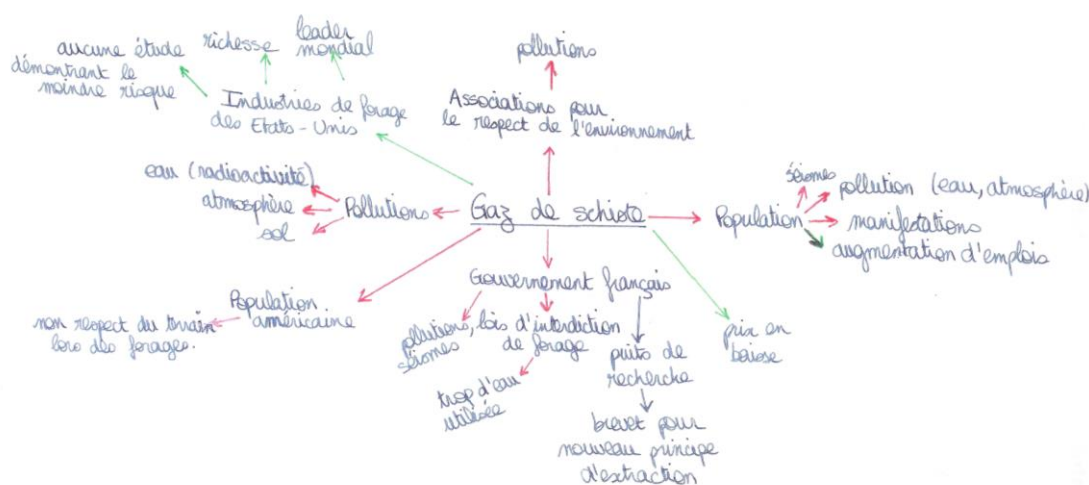 aucune étude
démontrant le
moindre risque
richesse
leader
mondial
Industries de forage
des Etats-Unis
pollutions
Associations pour
le respect de l'environnement
eau (radioactivité)
atmosphère
sol
Pollutions
Gaz de schiste
Population
séismes
pollution (eau, atmosphère)
manifestations
augmentation d'emplois
Population
américaine
non respect du terrain
lors des forages.
Gouvernement français
pollutions,
séismes
lois d'interdiction
de forage
trop d'eau
utilisée
puits de
recherche
brevet pour
nouveau principe
d'extraction
prix en
baisse